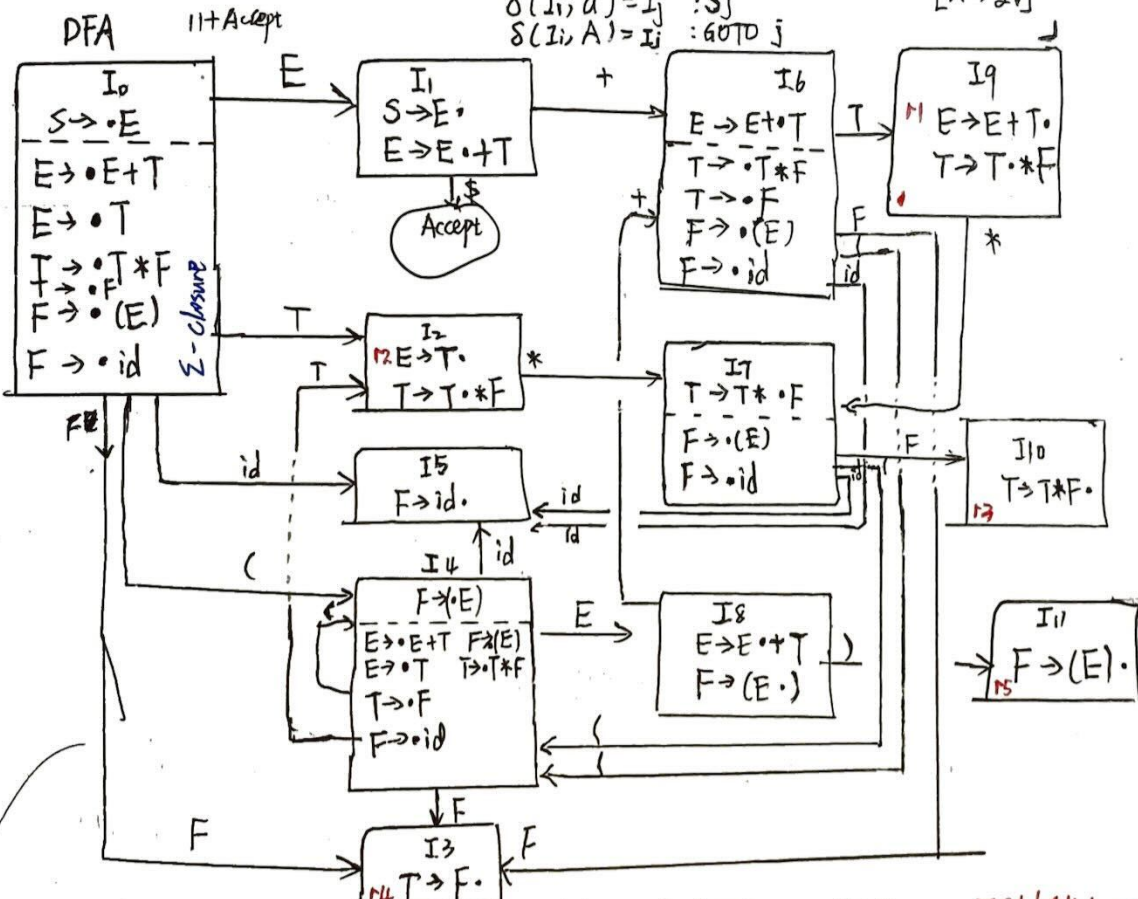 DFA
11+Accept
δ(Ii, a) = Ij : Sj
δ(Ii, A) = Ij : GOTO j
I0
S→•E
E→•E+T
E→•T
T→•T*F
T→•F
F→•(E)
F→•id
Σ-closure
E
I1
S→E•
E→E•+T
$
Accept
+
I6
E→E+•T
T→•T*F
T→•F
F→•(E)
F→•id
T
I9
r1 E→E+T•
T→T•*F
*
F
(
id
+
T
I2
r2 E→T•
T→T•*F
T
*
I7
T→T*•F
F→•(E)
F→•id
F
(
id
I10
T→T*F•
r3
F
id
I5
F→id•
id
id
id
(
I4
F→(•E)
E→•E+T F→(E)
E→•T T→•T*F
T→•F
F→•id
(
E
I8
E→E•+T
F→(E•)
)
I11
F→(E)•
r5
(
(
F
F
F
I3
r4 T→F•